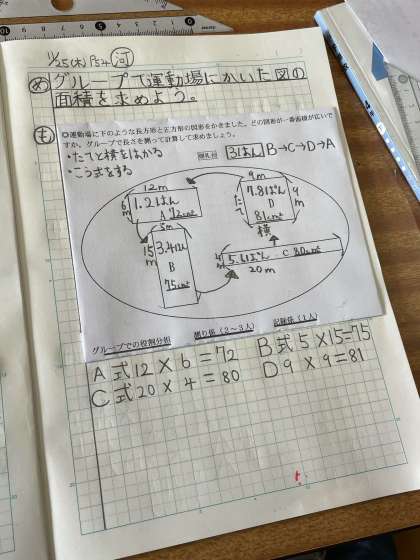 11/25(木) P54
め グループで運動場にかいた図の
面積を求めよう。
も
◎運動場に下のような長方形と正方形の図形をかきました。どの図形が一番面積が広いで
すか。グループで長さを測って計算して求めましょう。
・たてと横をはかる
・こう式をする
3はん B→C→D→A
12m
6m
1.2はん
A 72cm²
9m
たて
7.8はん
D
81cm²
9m
横
5m
15m
3.4はん
B
75cm²
4m
5.6はん C 80cm²
20m
グループでの役割分担 測り係(2~3人) 記録係(1人)
A 式 12×6=72
B 式 5×15=75
C 式 20×4=80
D 9×9=81